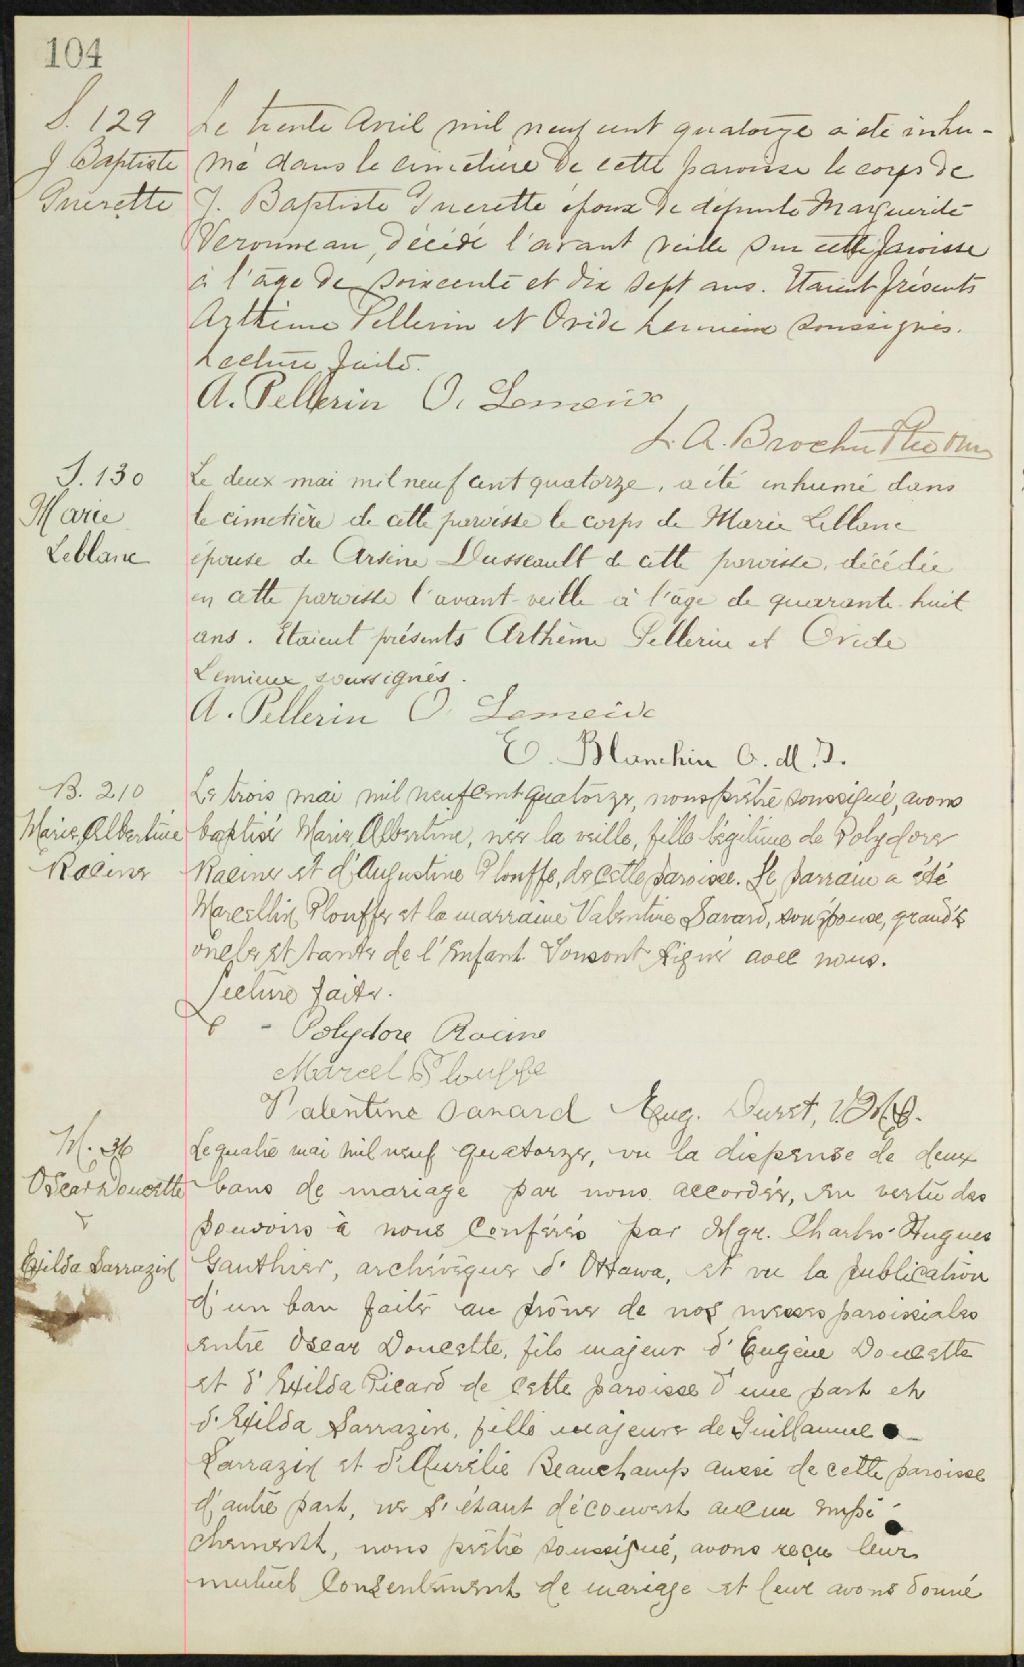 104
S. 129
J Baptiste
Guerette
Le trente Avril mil neuf cent quatorze a été inhu-
mé dans le cimetière de cette paroisse le corps de
J. Baptiste Guerette époux de défunte Marguerite
Veronneau, décédé l'avant veille sur cette paroisse
à l'âge de soixente et dix sept ans. Etaient présents
Arthème Pellerin et Ovide Lemieux soussignés.
Lecture faite.
A. Pellerin O. Lemeiux
L. A. Brochu Ptre
S. 130
Marie
Leblanc
Le deux mai mil neuf cent quatorze, a été inhumé dans
le cimetière de cette paroisse le corps de Marie Leblanc
épouse de Arsène Dusseault de cette paroisse, décédée
en cette paroisse l'avant-veille à l'âge de quarante-huit
ans. Etaient présents Arthème Pellerin et Ovide
Lemieux soussignés.
A. Pellerin O. Lemeiux
E. Blanchin O.M.I.
B. 210
Marie, Albertine
Racine
Le trois mai mil neuf cent quatorze, nous prêtre soussigné, avons
baptisé Marie, Albertine, née la veille, fille légitime de Polydore
Racine et d'Augustine Plouffe, de cette paroisse. Le parrain a été
Marcellin Plouffe et la marraine Valentine Savard, son épouse, grands
oncle et tante de l'enfant. Tous ont signé avec nous.
Lecture faite.
Polydore Racine
Marcel Plouffe
Valentine Savard Eug. Duret, O.M.I.
M. 36
Oscar Doucette
&
Exilda Sarrazin
Le quatre mai mil neuf quatorze, vu la dispense de deux
bans de mariage par nous accordée, en vertu des
pouvoirs à nous conférés par Mgr. Charles-Hugues
Gauthier, archévêque d'Ottawa, et vu la publication
d'un ban faite au prône de nos messes paroissiales
entre Oscar Doucette, fils majeur d'Eugène Doucette
et d'Exilda Picard de cette paroisse d'une part et
d'Exilda Sarrazin, fille majeure de Guillaume
Sarrazin et d'Aurélie Beauchamp aussi de cette paroisse
d'autre part, ne s'étant découvert aucun empê-
chement, nous prêtre soussigné, avons reçu leur
mutuel consentement de mariage et leur avons donné